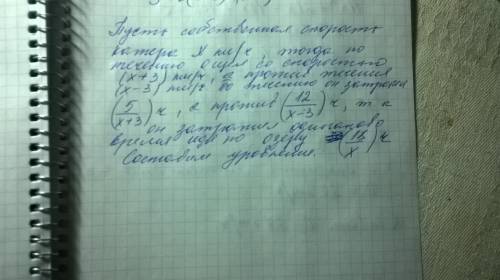 Пусть собственная скорость
катера x км/ч, тогда по
течению он шёл со скоростью
(x+3) км/ч, а против течения
(x-3) км/ч по течению он затратил
(5/x+3) ч, а против (12/x-3) ч, т к
он затратил одинаково
время идя по озеру (18/x) ч
Составим уравнение.